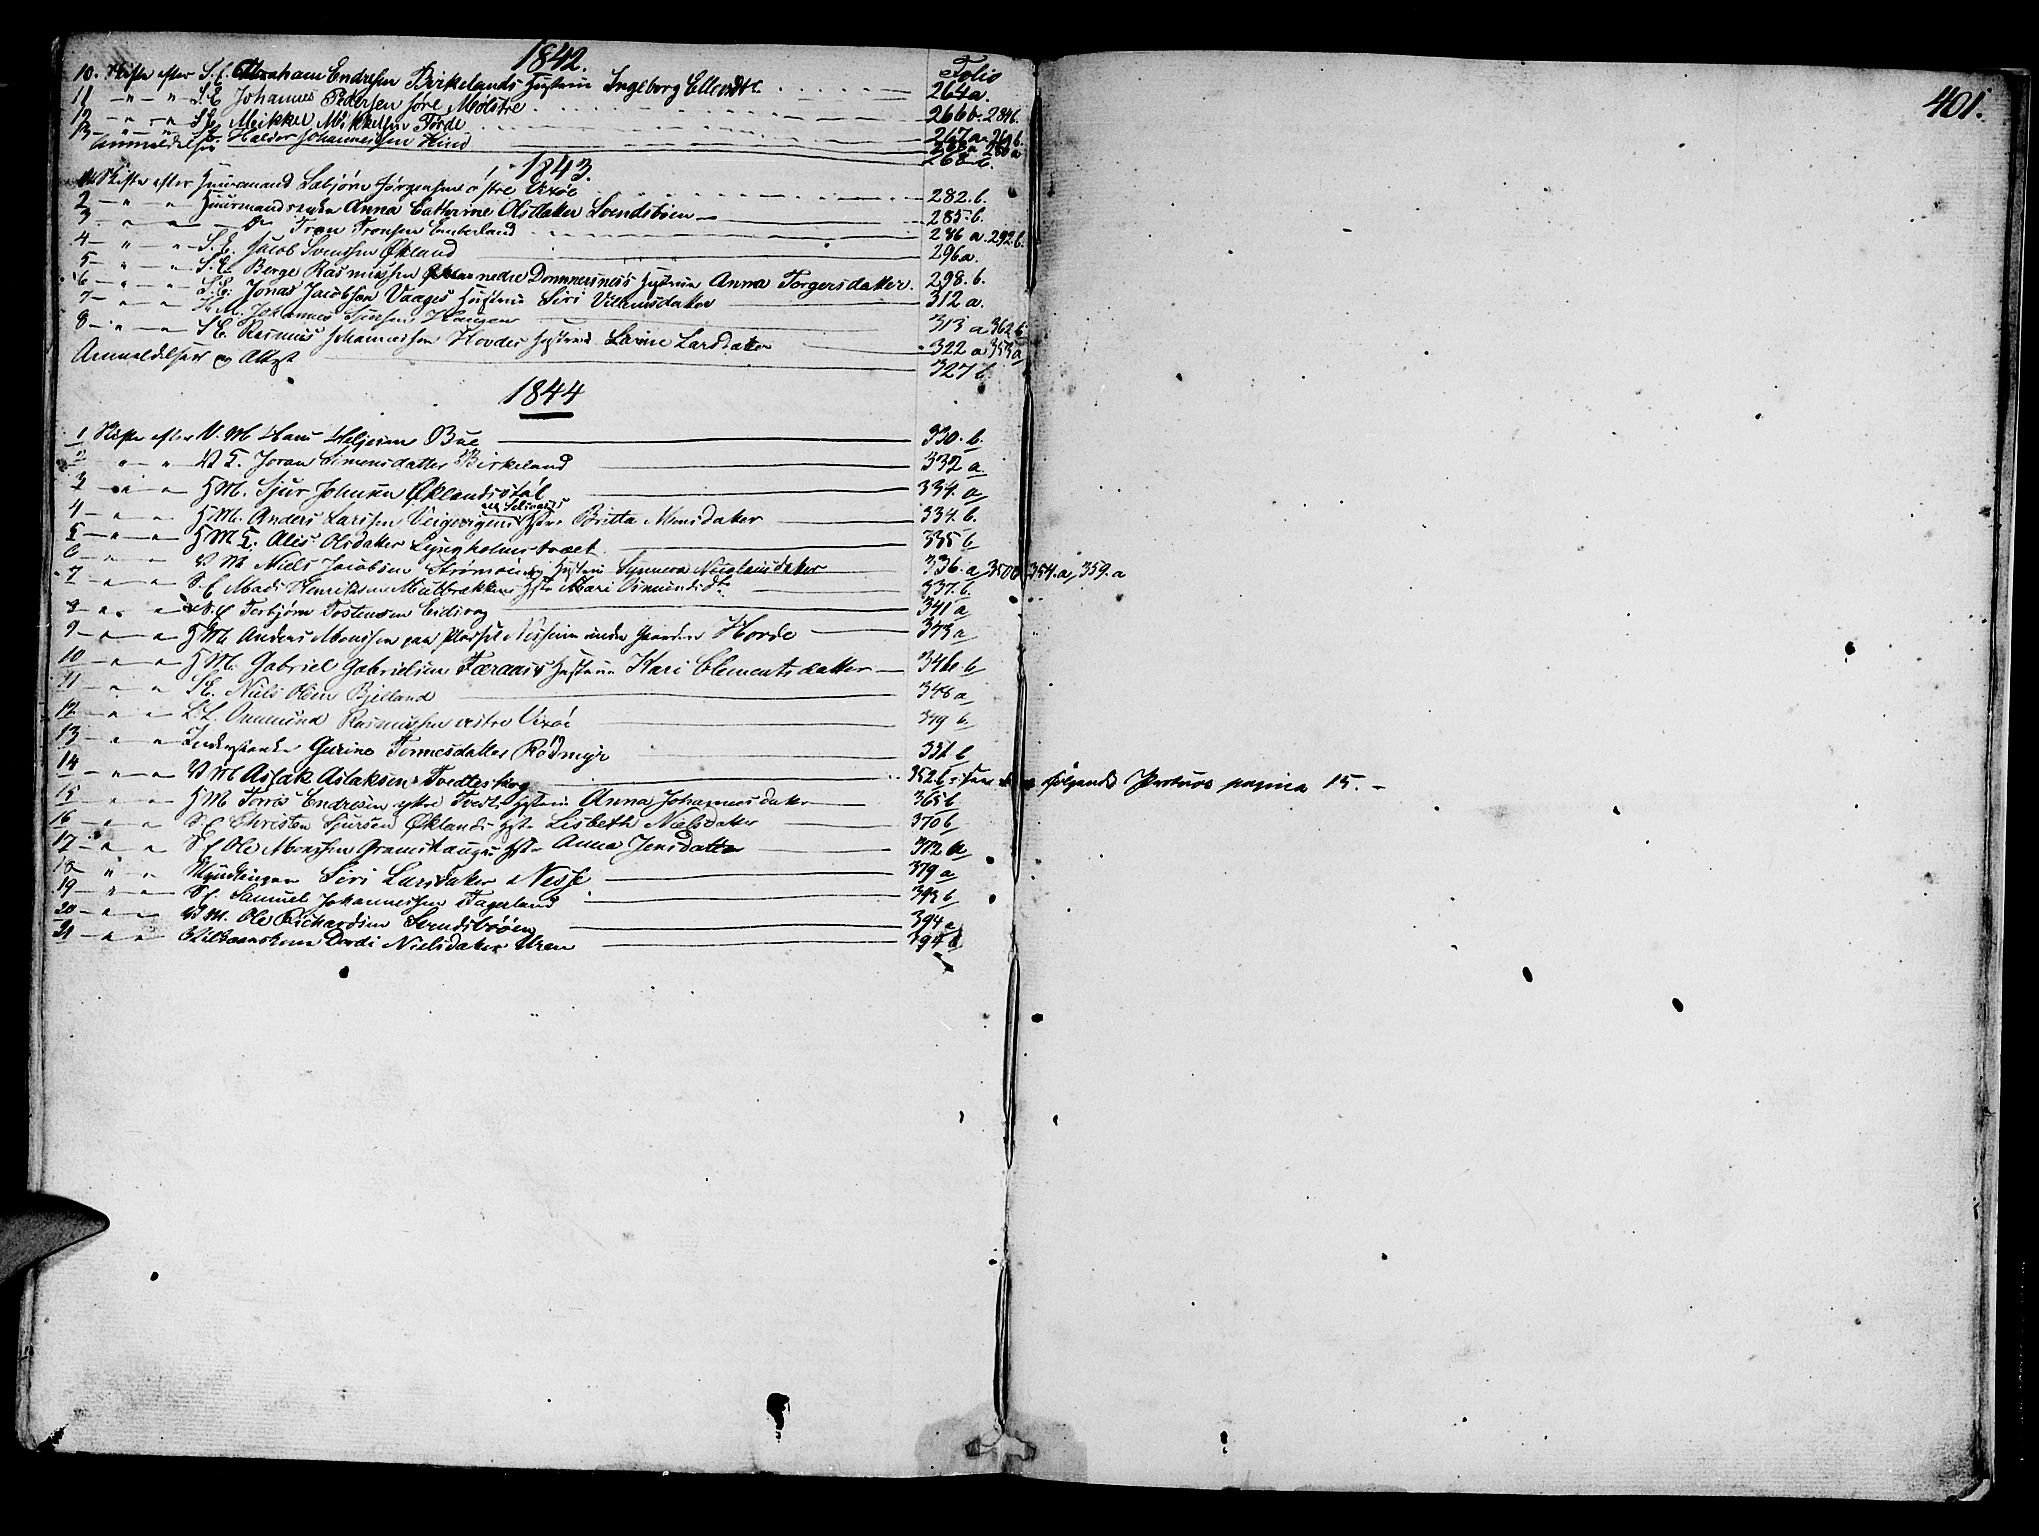 1842.
Folio
401.
10. Skifte efter S. E. Abraham Endresen Birkelands Hustrue Ingeborg Ellevsdtr. 264 a.
11 — " — " S. E. Johannes Pedersen søre Mølstre 266 b. 284 b.
12 — " — " S. E. Mikkel Mikkelsen Førde 267 a
13 — " — " Haldor Johannessen
Anmeldelser 268 b.
1843.
1 Skifte efter Huusmand Lasjørn Jørgensen østre Vixøe 282. b.
2 — " — " Huusmandsenke Anna Cathrine Olsdatter Svendsbøen — 285. b.
3 — " — " Tron Tronsen Emberland 286 a. 292. b.
4 — " — " S. E. Jacob Svendsen Økland 296 a.
5 — " — " S. E. Berge Rasmussen nedre Dommersnes's Hustrue Anna Torgersdatter. 298. b.
6 — " — " S. E. Jonas Jacobsen Vaages Hustrue Siri Villumsdatter 312 a.
7 — " — " H. M. Johannes Sjursen Haugen 313 a 362 b.
8 — " — " S. E. Rasmus Johannessen Hovdes Hustrue Larine Larsdatter 322 a 353 a
Anmeldelser og Attest 327 b.
1844
1 Skifte efter V. M Hans Heljesen Bue 330. b.
2 " — " V E. Joran Simensdatter Birkeland 332 a
3 — " — " H M. Sjur Johnsen Øklandsstøl 334. a
4 — " — " H M. Anders Larssen Veigevigens Hstr. Britta Monsdatter 334. b.
5 — " — " H M E. Alis Olsdatter Lyngholmstræet 335 b
6 — " — " V M Niels Jacobsen Strømøe og Hustrue Synneva Nieglausdatter 336. a, 350 354. a, 359. a
7 — " — " S. E Mads Henriksen Hstr. Kari Osmundsdt. 337. b.
8 — " — " S. E Torbjørn Tostensen Eidsvog 341 a
9 — " — " H M Anders Monssen paa Pladset Nesheim under Gaarden Hovde 343 a
10 — " — " H M. Gabriel Gabrielsen Færaas's Hustrue Kari Clementsdatter — 346 b
11 — " — " S. E. Niels Olsen Bjelland 348 a
12 — " — " L. L. Ommund Rasmussen vestre Vixøe 349 b.
13 — " — " Inderstenke Gurine Tormosdatter Rødmyr 351 b
14 — " — " V M Aslak Aslaksen Tvedteskog 352. b. see følgende Protocol pagina 15. —
15 — " — " H M Torris Endresen ystre Tvedts Hustrue Anna Johannesdatter 365 b.
16 — " — " S. E Christen Sjursen Øklands Hst. Lisbeth Nielsdatter 370 b
17 — " — " S. E Ole Monssen Gramshaugs Hst. Anna Jensdatter 372 a
18 — " — " Myndlingen Siri Larsdatter Nesse 379 a
19 — " — " S. E. Samuel Johannessen Fagerland 393 b
20 — " — " V M. Ole Richardsen Svendsbøen 394 a
21 — " — " Pilkarskone Dordi Nielsdatter Uren 394 b